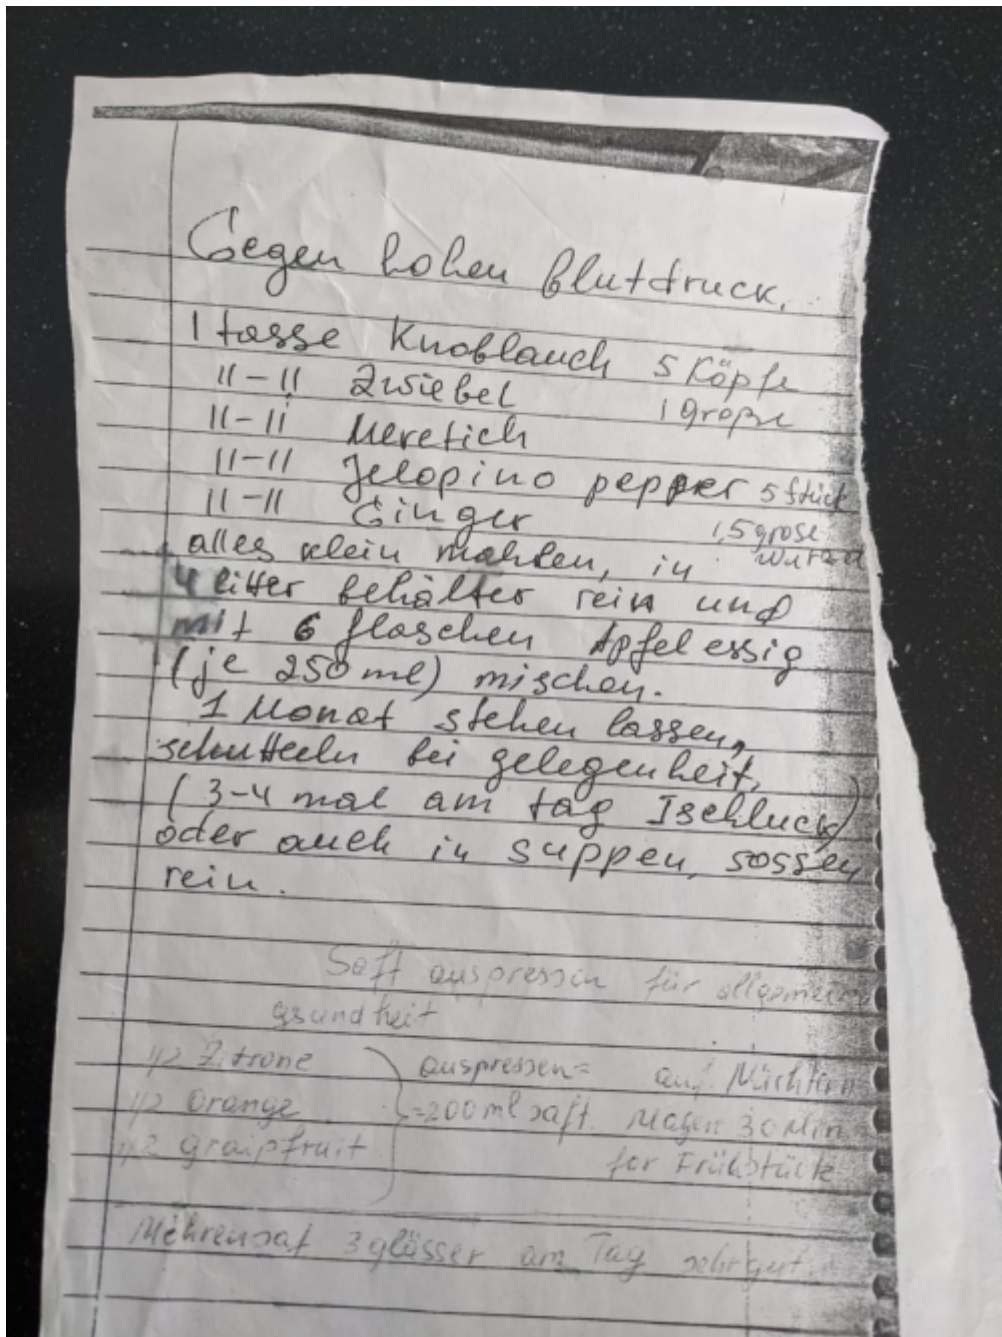 Gegen hohen Blutdruck.
1 tasse Knoblauch 5 Köpfe
11-11 Zwiebel 1 große
11-11 Meretich
11-11 Jelopino pepper 5 stück
11-11 Ginger 1,5 grose wurzel
alles klein mahlen, in
4 litter behälter rein und
mit 6 flaschen Apfelessig
(je 250 ml) mischen.
1 Monat stehen lassen,
schutteln bei gelegenheit.
(3-4 mal am tag 1schluck)
oder auch in suppen, sossen
rein.
Saft auspressen für allgemein
gsundheit
1/2 Zitrone auspressen= auf Nüchtern
1/2 Orange =200ml saft. Magen 30 Min
1/2 graipfruit for Frühstück
Möhrensaf 3 glässer am Tag sehr gut.